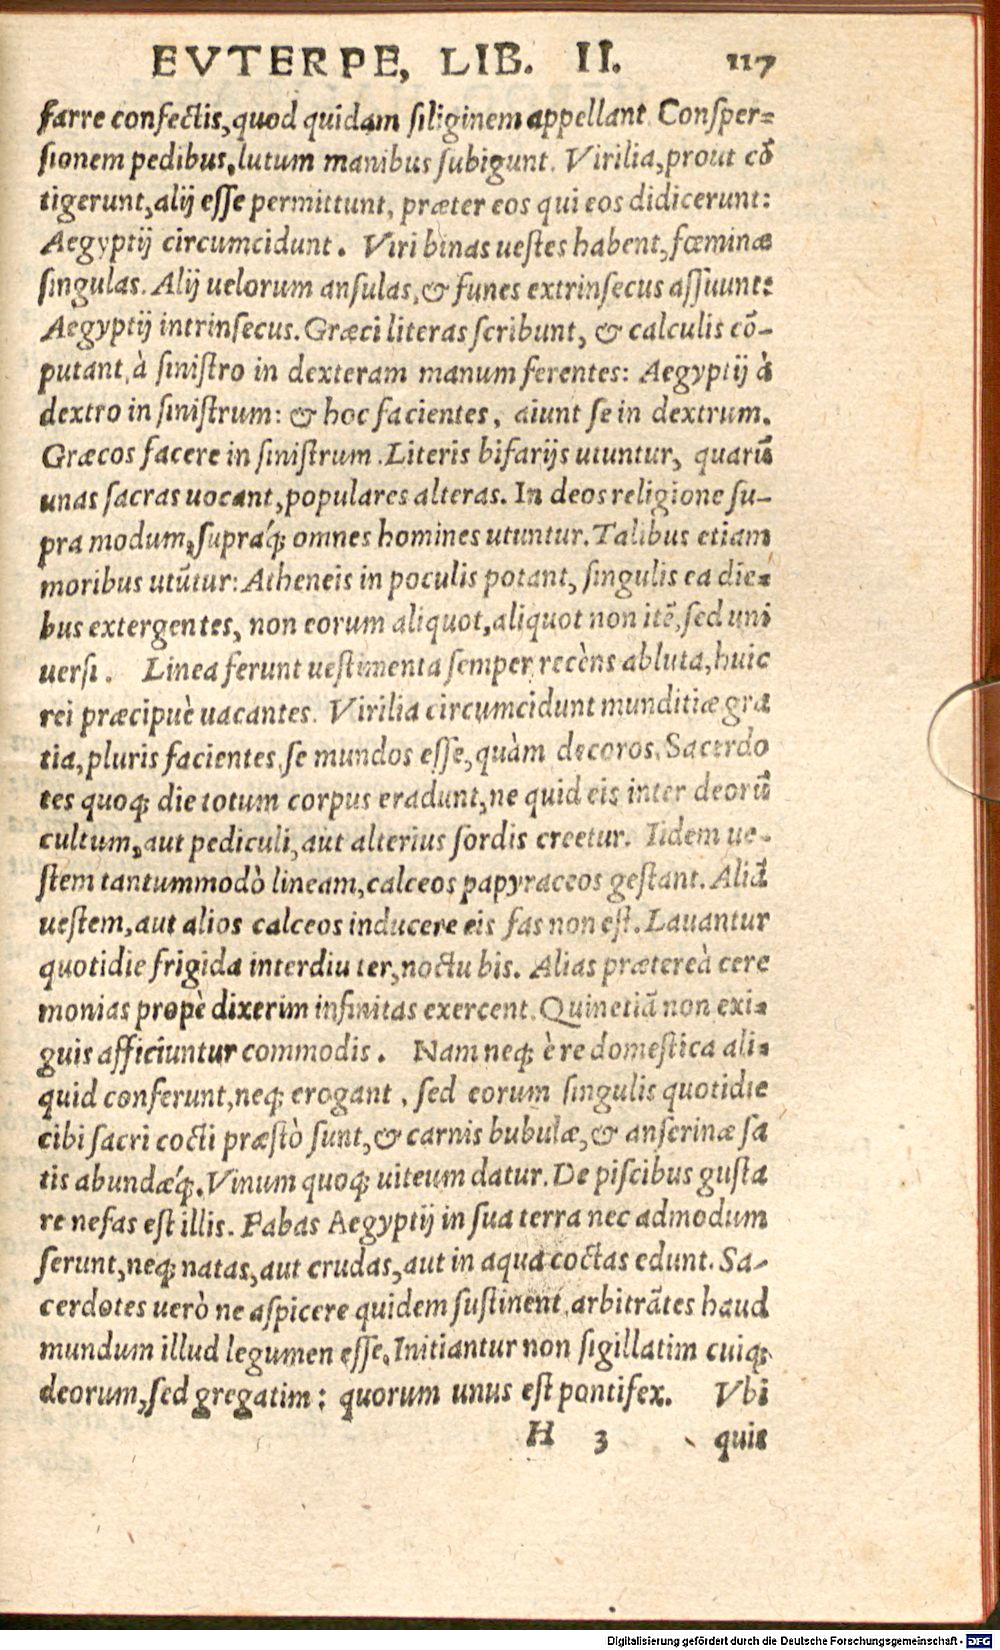 EVTERPE, LIB. II. 117
farre confectis, quod quidam siliginem appellant. Consper=
sionem pedibus, lutum manibus subigunt. Virilia, prout cō
tigerunt, alij esse permittunt, præter eos qui eos didicerunt:
Aegyptij circumcidunt. Viri binas uestes habent, fœminæ
singulas. Alij uelorum ansulas, & funes extrinsecus assuunt:
Aegyptij intrinsecus. Græci literas scribunt, & calculis cō-
putant, à sinistro in dexteram manum ferentes: Aegyptij à
dextro in sinistrum: & hoc facientes, aiunt se in dextrum.
Græcos facere in sinistrum. Literis bifarijs utuntur, quarū
unas sacras uocant, populares alteras. In deos religione su-
pra modum, supraq́; omnes homines utuntur. Talibus etiam
moribus utūtur: Atheneis in poculis potant, singulis ea die=
bus extergentes, non eorum aliquot, aliquot non itē, sed uni
uersi. Linea ferunt uestimenta semper recèns abluta, huic
rei præcipuè uacantes. Virilia circumcidunt munditiæ gra
tia, pluris facientes se mundos esse, quàm decoros. Sacerdo
tes quoq; die totum corpus eradunt, ne quid eis inter deorū
cultum, aut pediculi, aut alterius sordis creetur. Iidem ue-
stem tantummodò lineam, calceos papyraceos gestant. Aliā
uestem, aut alios calceos inducere eis fas non est. Lauantur
quotidie frigida interdiu ter, noctu bis. Alias prætereà cere
monias propè dixerim infinitas exercent. Quinetiā non exi=
guis afficiuntur commodis. Nam neq; è re domestica ali=
quid conferunt, neq; erogant, sed eorum singulis quotidie
cibi sacri cocti præstò sunt, & carnis bubulæ, & anserinæ sa
tis abundæq́;. Vinum quoq; uiteum datur. De piscibus gusta
re nefas est illis. Fabas Aegyptij in sua terra nec admodum
serunt, neq; natas, aut crudas, aut in aqua coctas edunt. Sa-
cerdotes uerò ne aspicere quidem sustinent, arbitrātes haud
mundum illud legumen esse. Initiantur non sigillatim cuiq;
deorum, sed gregatim: quorum unus est pontifex. Vbi
H 3 quis
Digitalisierung gefördert durch die Deutsche Forschungsgemeinschaft - DFG